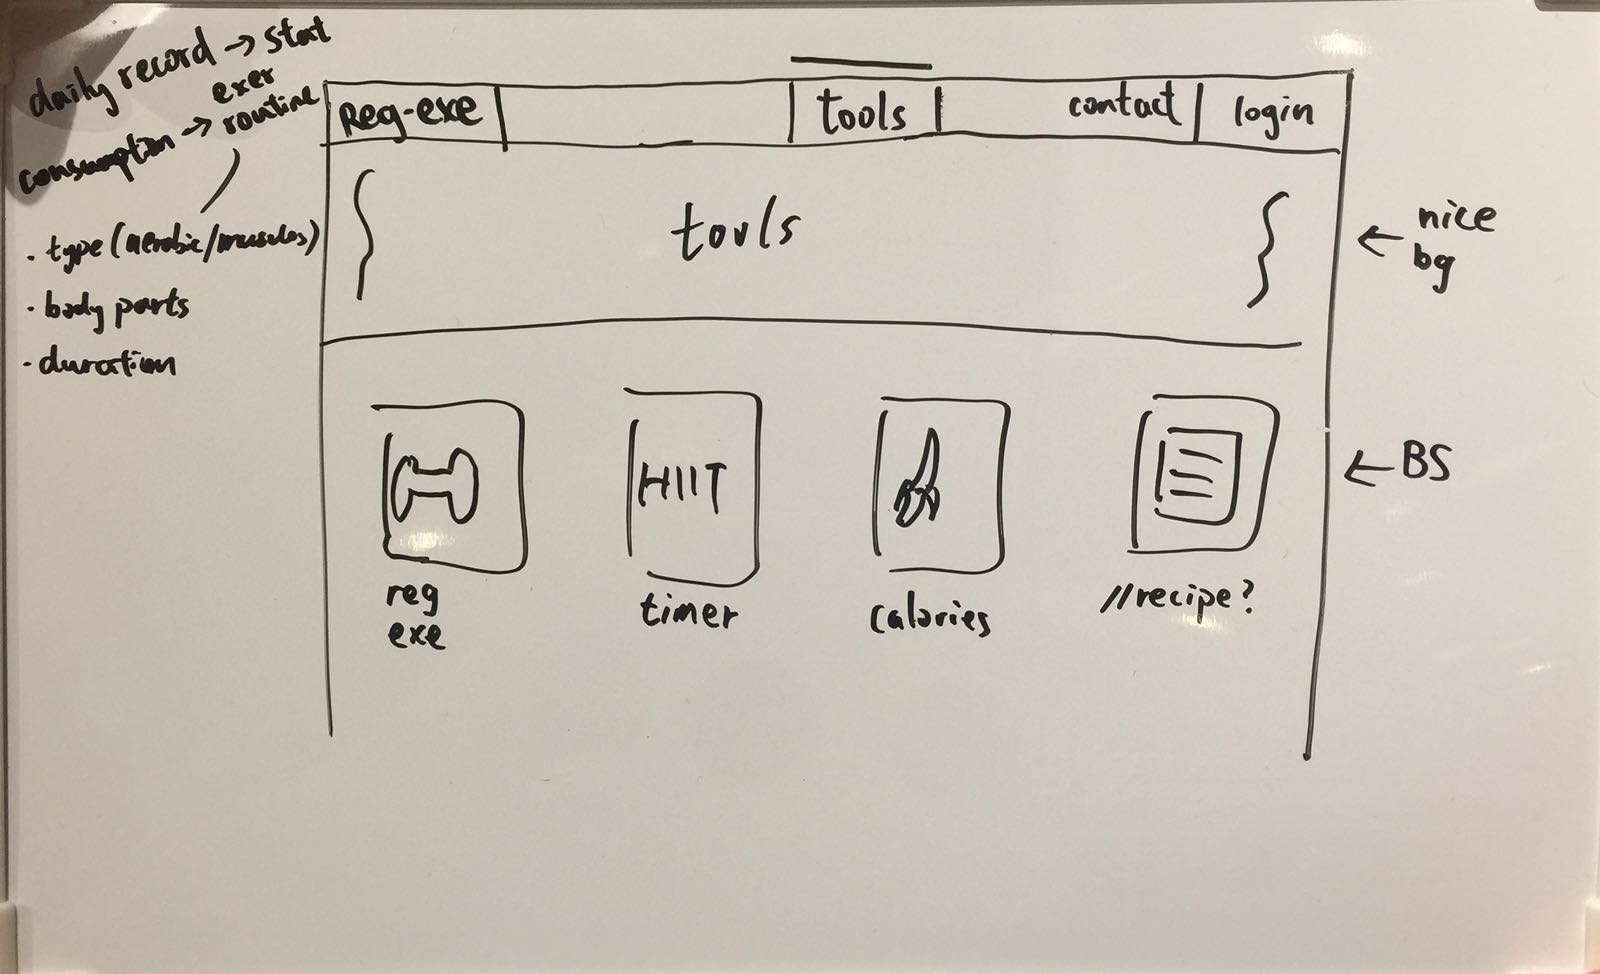 daily record → stat
consumption → exer routine
· type (aerobic/muscles)
· body parts
· duration
Reg-exe
tools
contact
login
tools
← nice bg
HIIT
← BS
reg
exe
timer
calories
//recipe?